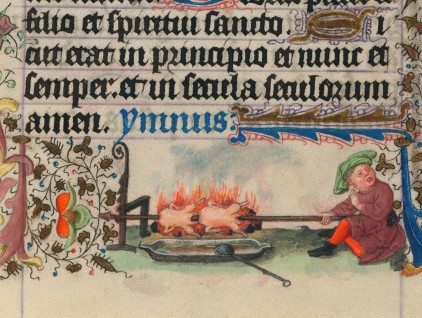 filio et spiritui sancto Si
cut erat in principio et nunc et
semper. et in secula seculorum
amen. ymnus: